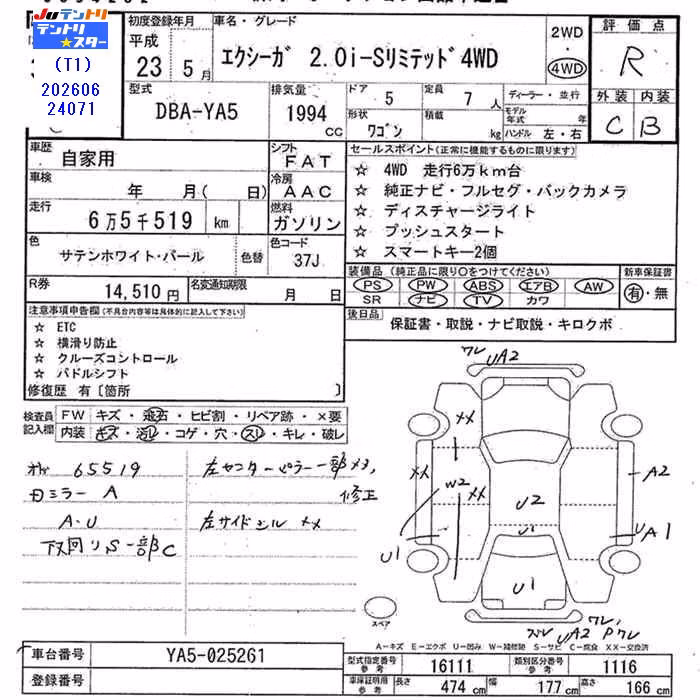 JUテントリ
テントリ★スター
(T1)
202606
24071
初度登録年月
平成
23 5月
車名・グレード
エクシーガ 2.0i-Sリミテッド 4WD
2WD
・
4WD
評価点
R
外装 内装
C B
型式
DBA-YA5
排気量
1994 CC
ドア 5
形状 ワゴン
定員 7 人
積載 kg
ディーラー・並行
モデル年式 年
ハンドル 左・右
車歴 自家用
シフト FAT
車検 年 月( 日)
冷房 AAC
走行 6万5千519 km
燃料 ガソリン
色 サテンホワイト・パール 色替
色コード 37J
R券 14,510円
名変通知期限 月 日
セールスポイント(正常に機能するものに限ります)
☆ 4WD 走行6万km台
☆ 純正ナビ・フルセグ・バックカメラ
☆ ディスチャージライト
☆ プッシュスタート
☆ スマートキー2個
装備品(純正品に限り○をつけてください)
PS PW ABS エアB AW
SR ナビ TV カワ
新車保証書
有・無
後日品 保証書・取説・ナビ取説・キロクボ
注意事項申告欄(不具合内容等は具体的に記入して下さい)
☆ ETC
☆ 横滑り防止
☆ クルーズコントロール
☆ パドルシフト
修復歴 有〔箇所 〕
検査員記入欄
FW キズ・飛石・ヒビ割・リペア跡・×要
内装 キズ・汚レ・コゲ・穴・スレ・キレ・破レ
65519
ミラー A
A・U
下回りS一部C
左センターピラー一部メメ,
修正
左サイドシル メメ
ワレ UA2
メメ
メメ
メメ
W2
U2
A2
UA1
U1
U1
U1
ワレ,
UA2 Pワレ
スペア
A-キズ E-エクボ U-凹み W-補修跡 S-サビ C-腐食 XX-交換済
車台番号 YA5-025261
登録番号
型式指定番号 参考 16111
類別区分番号 参考 1116
車庫証明用 参考 長さ 474 cm 幅 177 cm 高さ 166 cm